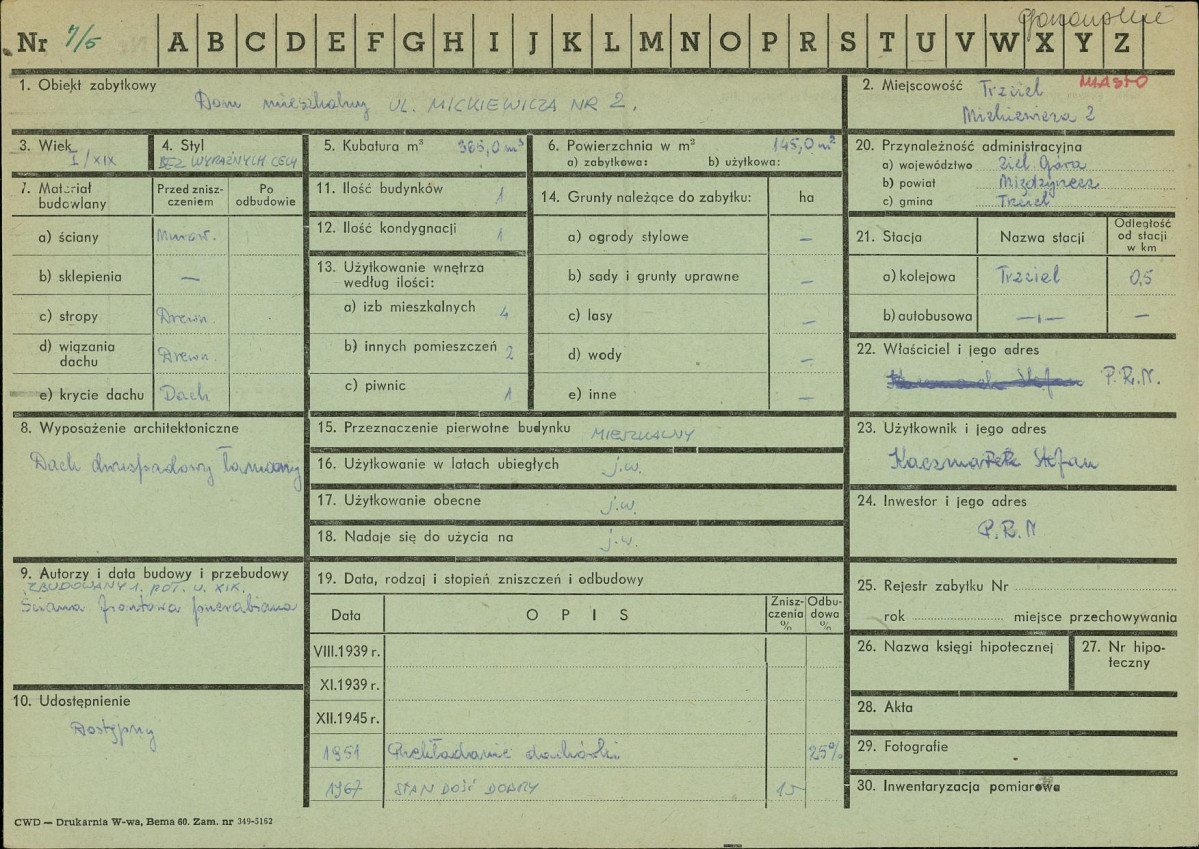 Nr 7/5 A B C D E F G H I J K L M N O P R S T U V W X Y Z
1. Obiekt zabytkowy
Dom mieszkalny UL. MICKIEWICZA NR 2.
2. Miejscowość Trzciel MIASTO
Mickiewicza 2
3. Wiek I/XIX
4. Styl
BEZ WYRAŹNYCH CECH
5. Kubatura m³ 365,0 m³
6. Powierzchnia w m² 145,0 m²
a) zabytkowa: b) użytkowa:
20. Przynależność administracyjna
a) województwo Ziel. Góra
b) powiat Międzyrzecz
c) gmina Trzciel
7. Materiał budowlany
Przed zniszczeniem
Po odbudowie
a) ściany Murow.
b) sklepienia —
c) stropy Drewn.
d) wiązania dachu Drewn.
e) krycie dachu Dach
11. Ilość budynków 1
12. Ilość kondygnacji 1
13. Użytkowanie wnętrza według ilości:
a) izb mieszkalnych 4
b) innych pomieszczeń 2
c) piwnic 1
14. Grunty należące do zabytku: ha
a) ogrody stylowe —
b) sady i grunty uprawne —
c) lasy —
d) wody —
e) inne —
21. Stacja Nazwa stacji Odległość od stacji w km
a) kolejowa Trzciel 0,5
b) autobusowa —„— —
22. Właściciel i jego adres
P.R.N.
8. Wyposażenie architektoniczne
Dach dwuspadowy łamany
15. Przeznaczenie pierwotne budynku MIESZKALNY
16. Użytkowanie w latach ubiegłych j.w.
17. Użytkowanie obecne j.w.
18. Nadaje się do użycia na j.w.
23. Użytkownik i jego adres
Kaczmarek Stefan
24. Inwestor i jego adres
P.R.N
9. Autorzy i data budowy i przebudowy
ZBUDOWANY 1. POŁ. W. XIX.
Ściana frontowa przerabiana
19. Data, rodzaj i stopień zniszczeń i odbudowy
Data O P I S Zniszczenia % Odbudowa %
VIII.1939 r.
XI.1939 r.
XII.1945 r.
1951 Przekładanie dachówki 25%
1967 STAN DOŚĆ DOBRY 15
25. Rejestr zabytku Nr
rok miejsce przechowywania
26. Nazwa księgi hipotecznej
27. Nr hipoteczny
10. Udostępnienie
Dostępny
28. Akta
29. Fotografie
30. Inwentaryzacja pomiarowa
CWD — Drukarnia W-wa, Bema 60. Zam. nr 349-5162